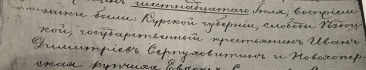 шестнадцатого Іюля, воспріем-
никами были: Курской губерніи, слободы
кой, государственный крестьянинъ Иванъ
Димитріевъ Серпуховитинъ и Новохопер-
ская купчиха